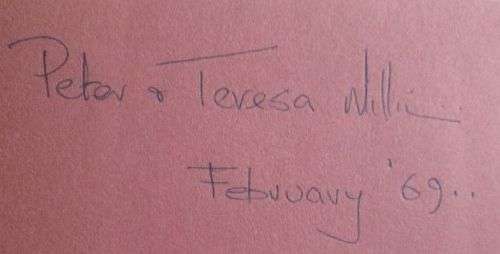 Peter & Teresa
February '69..